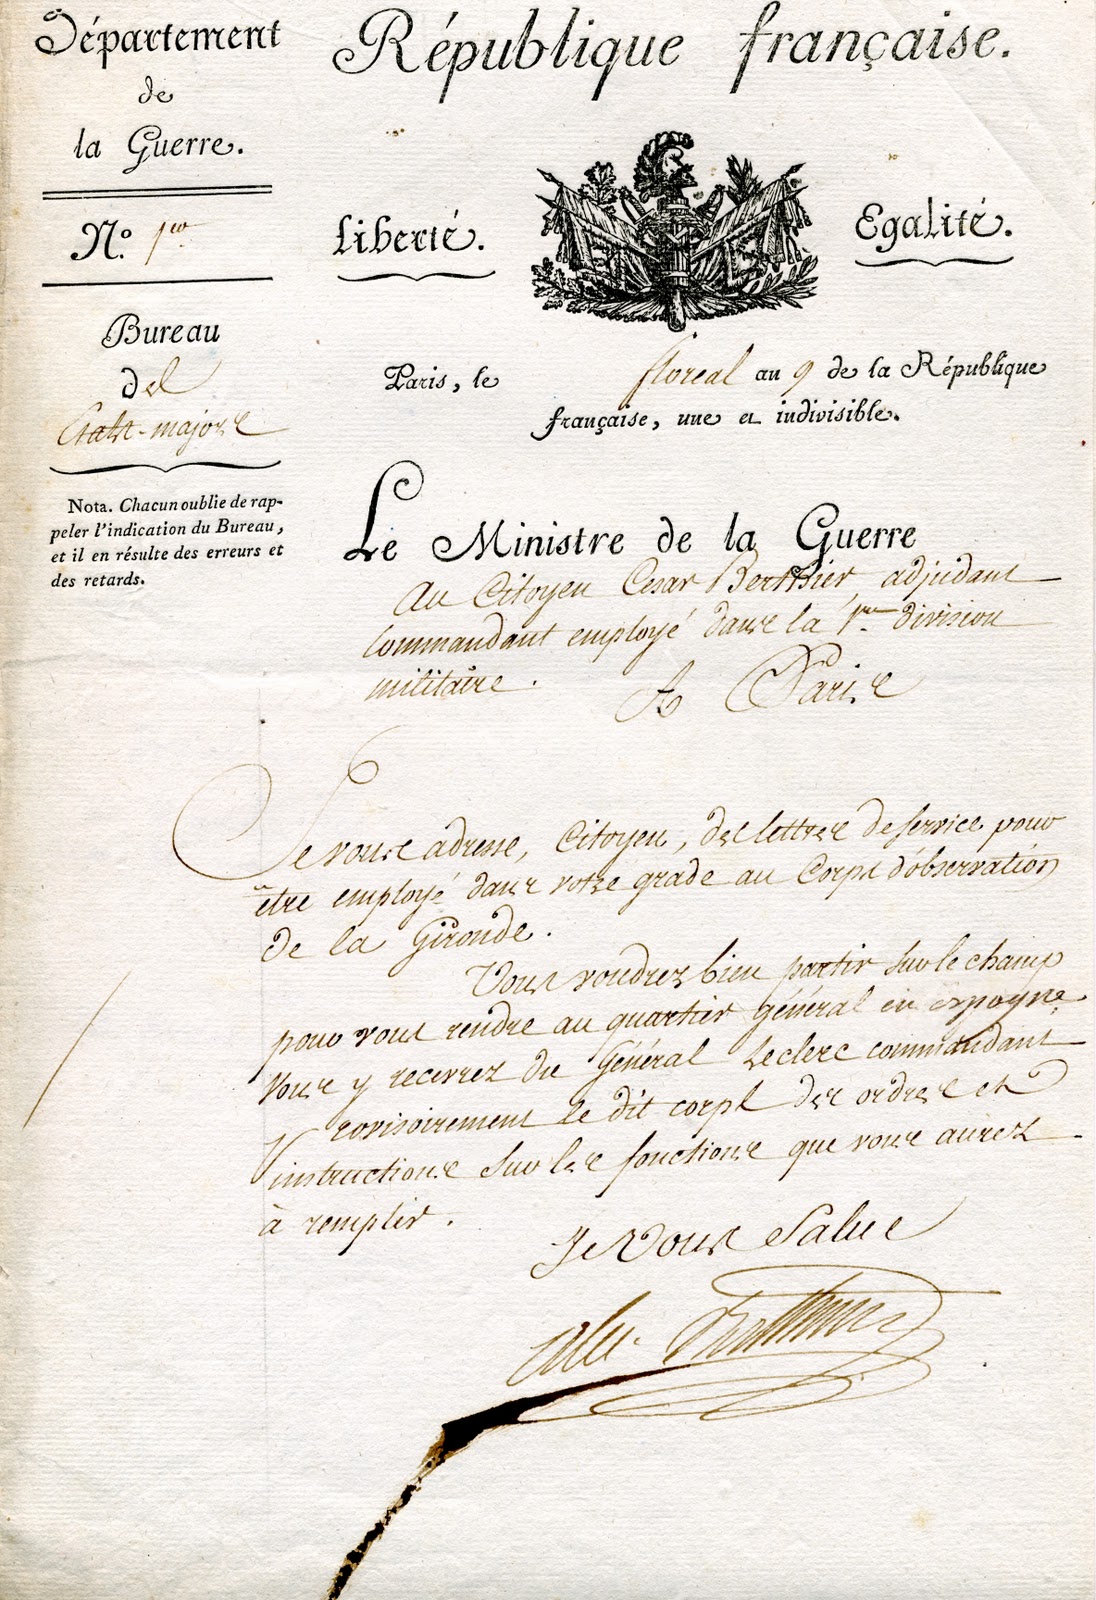 Département
de
la Guerre.
N.º 1er
Bureau
del
Etat-major
Nota. Chacun oublie de rap-
peler l'indication du Bureau,
et il en résulte des erreurs et
des retards.
République française.
Liberté.
Egalité.
Paris, le floreal an 9 de la République
française, une et indivisible.
Le Ministre de la Guerre
Au Citoyen Cesar Berthier, adjudant
Commandant employé dans la 1re division
militaire.
A Paris
Je vous adresse, Citoyen, des lettres de service pour
être employé dans votre grade au Corps d'observation
de la Gironde.
Vous voudrez bien partir sur le champ
pour vous rendre au quartier général en espagne,
vous y recevrez du Général Leclerc commandant
Provisoirement le dit corps des ordres et
instructions sur les fonctions que vous aurez
à remplir.
Je Vous Salue
Alex. Berthier